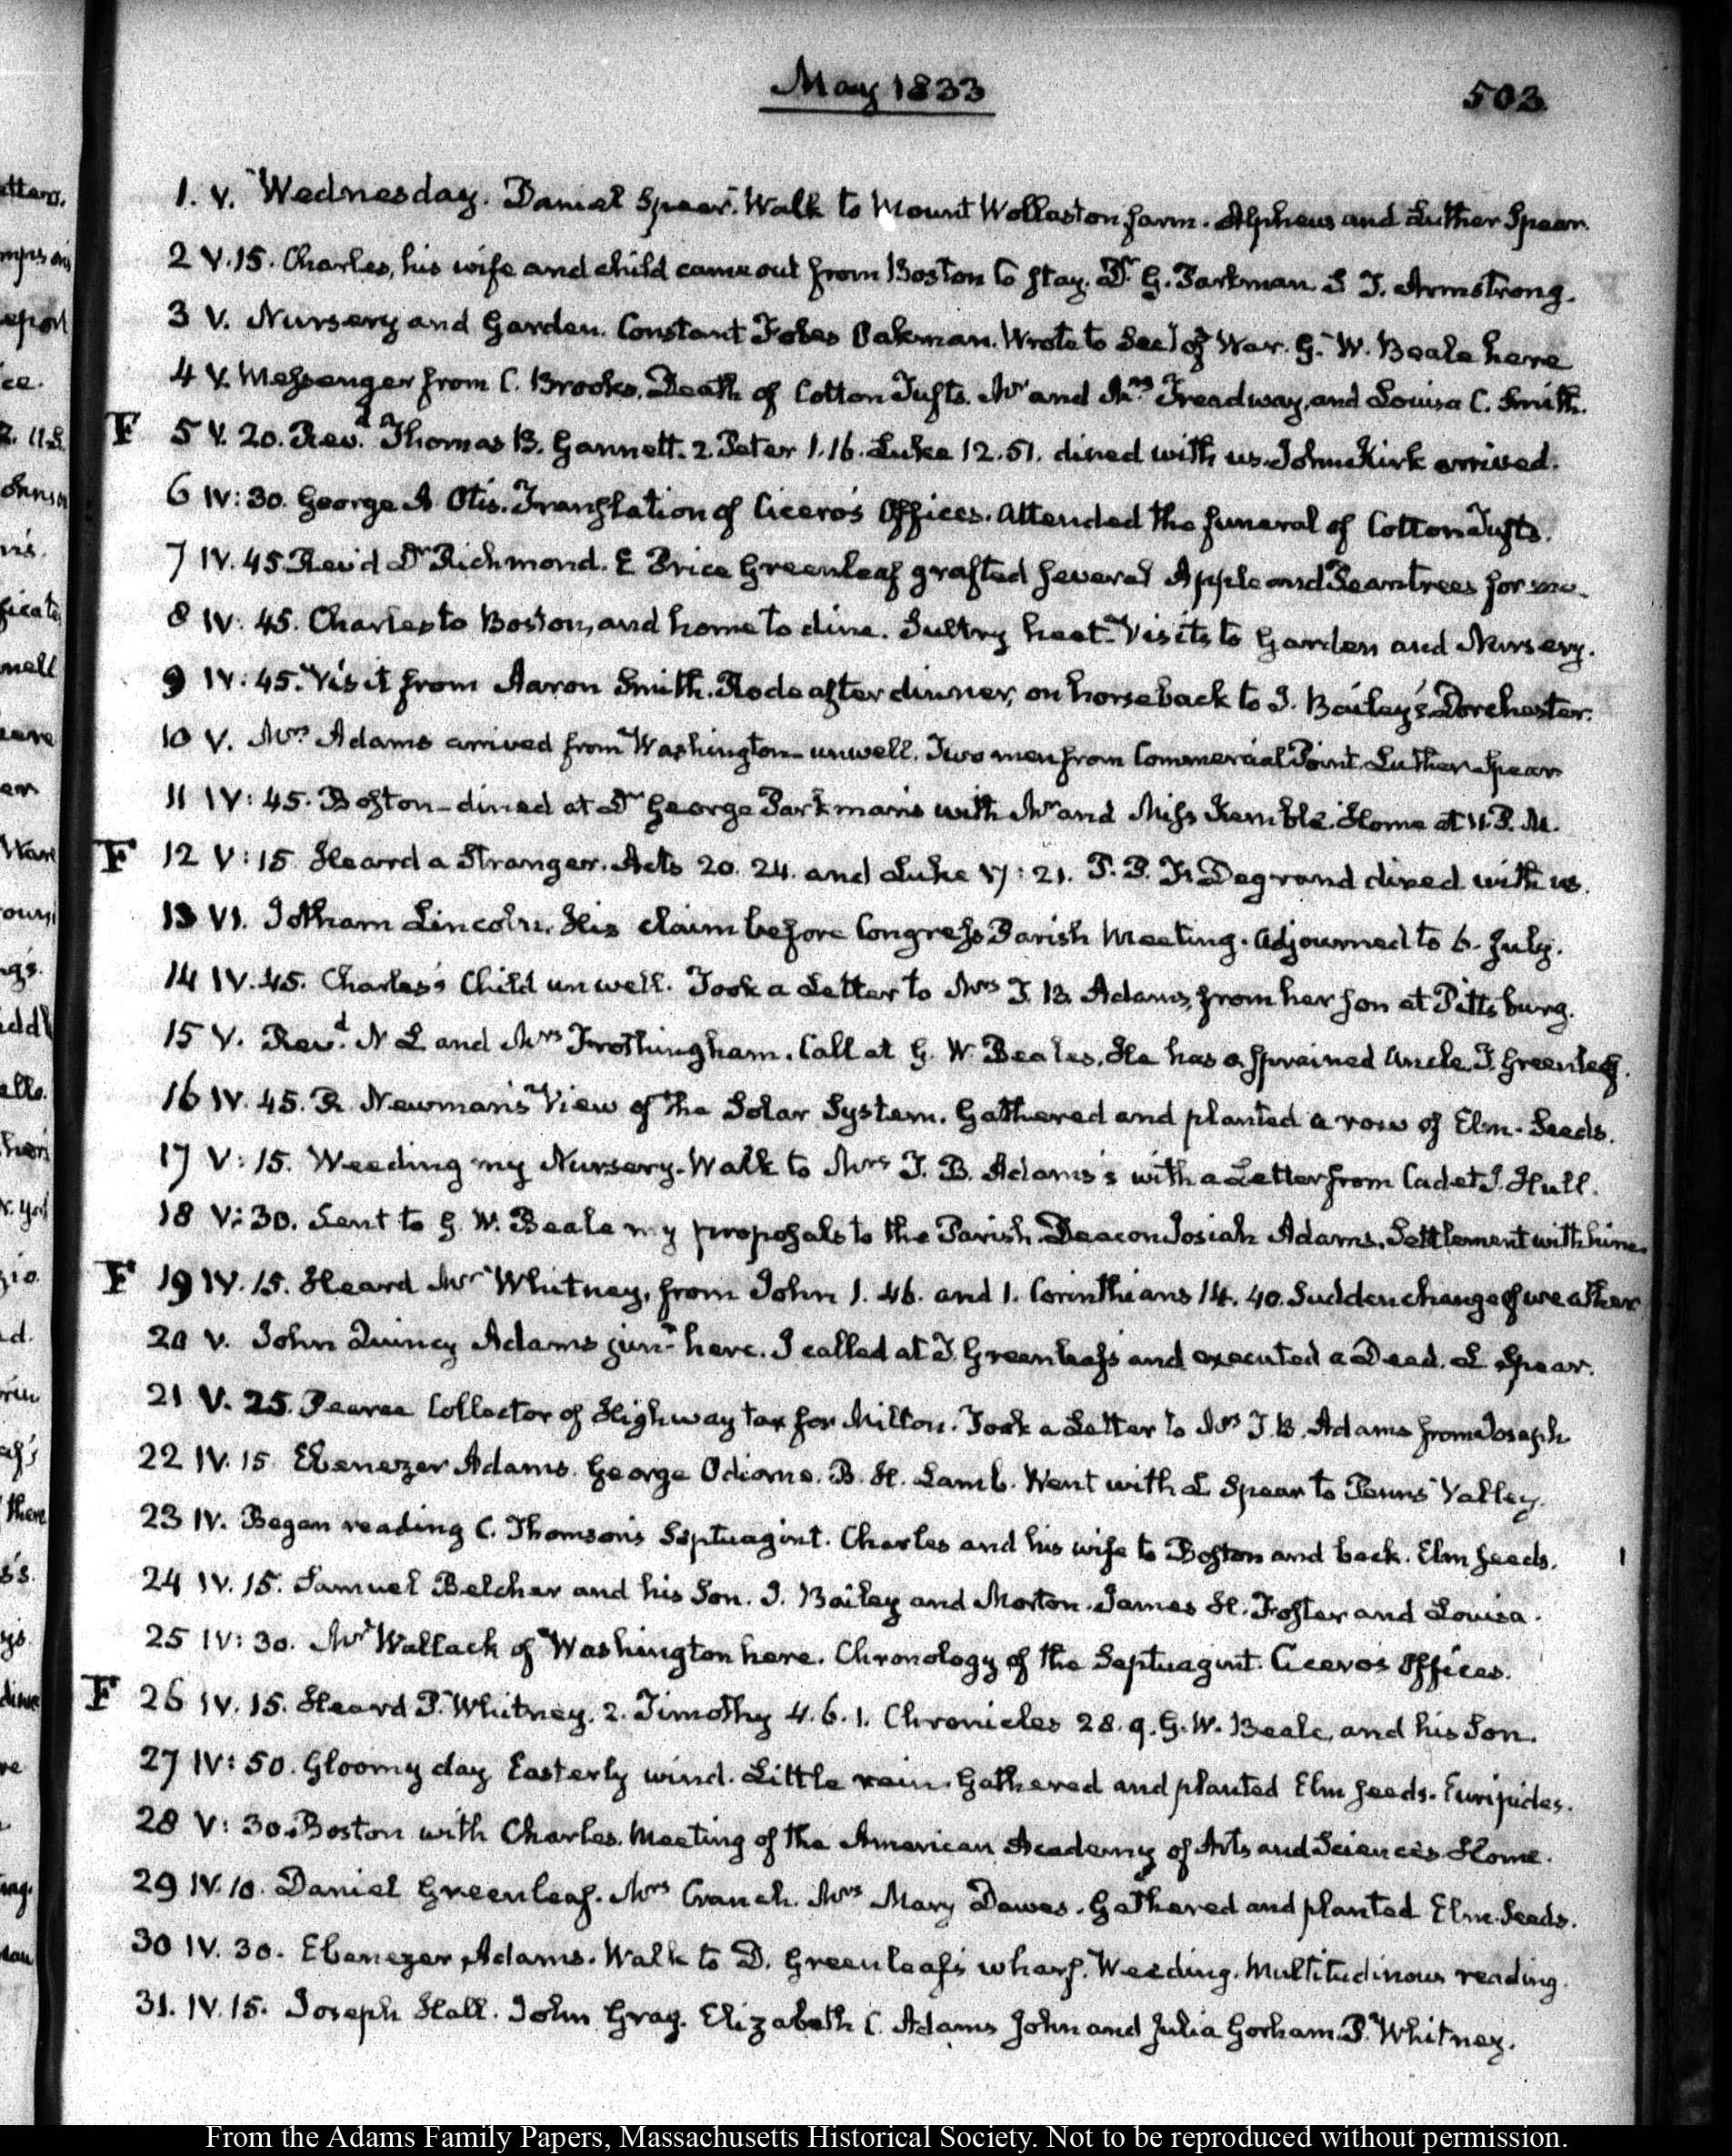 May 1833
503
1. V. Wednesday. Daniel Spear. Walk to Mount Wollaston farm. Alpheus and Luther Spear.
2 V.15. Charles, his wife and child came out from Boston to stay. Dr. G. Parkman. S T. Armstrong.
3 V. Nursery and Garden. Constant Fobes Oakman. Wrote to Secy of War. G. W. Beale here
4 V. Messenger from C. Brooks. Death of Cotton Tufts. Mr and Mrs Treadway, and Louisa C. Smith.
F 5 V. 20. Revd. Thomas B. Gannett. 2. Peter 1.16. Luke 12.51. dined with us. John Kirk arrived.
6 IV:30. George A Otis. Translation of Cicero's Offices. Attended the funeral of Cotton Tufts.
7 IV. 45. Rev'd Dr Richmond. E Price Greenleaf grafted several Apple and Pear trees for me.
8 IV: 45. Charles to Boston, and home to dine. Sultry heat. Visits to Garden and Nursery.
9 IV:45. Visit from Aaron Smith. Rode after dinner, on horseback to J. Bailey's Dorchester.
10 V. Mrs Adams arrived from Washington unwell. Two men from Commercial Point. Luther Spear
11 IV: 45. Boston—dined at Dr George Parkman's with Mr and Miss Kemble. Home at 11. P. M.
F 12 V:15 Heard a Stranger. Acts 20. 24. and Luke 17:21. P. P. F. Degrand dined with us.
13 VI. Jotham Lincoln. His claim before Congress. Parish Meeting. Adjourned to 6. July.
14 IV.45. Charles's Child unwell. Took a Letter to Mrs T. B. Adams, from her son at Pittsburg.
15 V. Revd. N L and Mrs Frothingham. Call at G. W. Beales. He has a sprained Ancle. T. Greenleaf.
16 IV. 45. R. Newman's View of the Solar System. Gathered and planted a row of Elm-Seeds.
17 V:15. Weeding my Nursery. Walk to Mrs T. B. Adams's with a Letter from Cadet J. Hull.
18 V:30. Sent to G. W. Beale my proposals to the Parish. Deacon Josiah Adams. Settlement with him.
F 19 IV.15. Heard Mr Whitney, from John 1. 46. and 1. Corinthians 14. 40. Sudden change of weather
20 V. John Quincy Adams junr here. I called at T. Greenleaf's and executed a Deed. L Spear.
21 V. 25. Pearce Collector of Highway tax for Milton. Took a Letter to Mrs T. B. Adams from Joseph
22 IV. 15 Ebenezer Adams. George Odiorne. B. H. Lamb. Went with L Spear to Penns Valley.
23 IV. Began reading C. Thomson's Septuagint. Charles and his wife to Boston and back. Elm seeds.
24 IV. 15. Samuel Belcher and his Son. J. Bailey and Morton. James H. Foster and Louisa.
25 IV: 30. Mr Wallack of Washington here. Chronology of the Septuagint. Cicero's Offices.
F 26 IV. 15. Heard P. Whitney. 2. Timothy 4. 6. 1. Chronicles 28. 9. G. W. Beale, and his Son.
27 IV: 50. Gloomy day Easterly wind. Little rain. Gathered and planted Elm seeds. Euripides.
28 V: 30. Boston with Charles. Meeting of the American Academy of Arts and Sciences. Home.
29 IV.10. Daniel Greenleaf. Mrs Cranch. Mrs Mary Dawes. Gathered and planted Elm Seeds.
30 IV. 30. Ebenezer Adams. Walk to D. Greenleaf's wharf. Weeding. Multitudinous reading.
31. IV.15. Joseph Hall. John Gray. Elizabeth C. Adams John and Julia Gorham. P. Whitney.
From the Adams Family Papers, Massachusetts Historical Society. Not to be reproduced without permission.